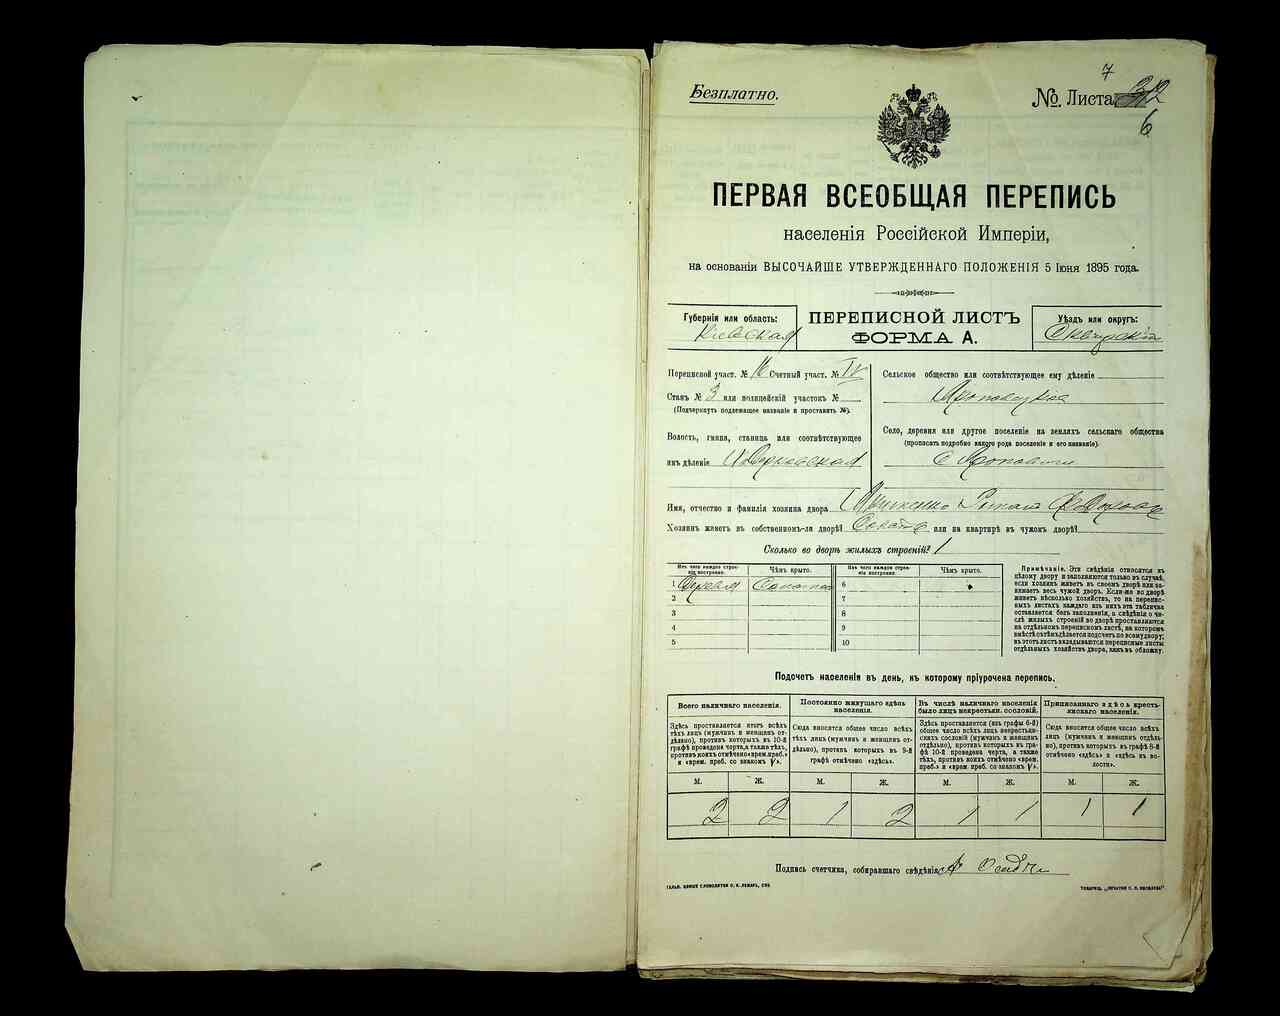 7
Безплатно.
№. Листа
6
ПЕРВАЯ ВСЕОБЩАЯ ПЕРЕПИСЬ
населенія Россійской Имперіи,
на основаніи ВЫСОЧАЙШЕ УТВЕРЖДЕННАГО ПОЛОЖЕНІЯ 5 Іюня 1895 года.
Губернія или область:
Кіевская
ПЕРЕПИСНОЙ ЛИСТЪ
ФОРМА А.
Уѣздъ или округъ:
Сквирскій
Переписной участ. № 16 Счетный участ. № IV
Станъ № 3 или полицейскій участокъ №
(Подчеркнуть подлежащее названіе и проставить №).
Волость, гмина, станица или соотвѣтствующее
имъ дѣленіе
Сельское общество или соотвѣтствующее ему дѣленіе
Село, деревня или другое поселеніе на земляхъ сельскаго общества
(прописать подробно какого рода поселеніе и его названіе).
с
Имя, отчество и фамилія хозяина двора
Хозяинъ живетъ въ собственномъ-ли дворѣ? или на квартирѣ въ чужомъ дворѣ?
Сколько во дворѣ жилыхъ строеній? 1
Изъ чего каждое строеніе построено.
Чѣмъ крыто.
Изъ чего каждое строеніе построено.
Чѣмъ крыто.
1 6
2 7
3 8
4 9
5 10
Примѣчаніе. Эти свѣдѣнія относятся къ
цѣлому двору и заполняются только въ случаѣ,
если хозяинъ живетъ въ своемъ дворѣ или занимаетъ
весь чужой дворъ. Если-же во дворѣ
живетъ нѣсколько хозяйствъ, то на переписныхъ
листахъ каждаго изъ нихъ эта табличка
оставляется безъ заполненія, а свѣдѣнія о числѣ
жилыхъ строеній во дворѣ проставляются
на отдѣльномъ переписномъ листѣ, на которомъ
вмѣстѣ съ тѣмъ дѣлается подсчетъ по всему двору;
въ этотъ листъ вкладываются переписные листы
отдѣльныхъ хозяйствъ двора, какъ въ обложку.
Подсчетъ населенія въ день, къ которому пріурочена перепись.
Всего наличнаго населенія.
Здѣсь проставляется итогъ всѣхъ
тѣхъ лицъ (мужчинъ и женщинъ отдѣльно),
противъ которыхъ въ 10-й
графѣ проведена черта, а также тѣхъ,
противъ коихъ отмѣчено «врем. преб.»
и «врем. преб. со знакомъ V».
Постоянно живущаго здѣсь
населенія.
Сюда вносятся общее число всѣхъ
тѣхъ лицъ (мужчинъ и женщинъ отдѣльно),
противъ которыхъ въ 9-й
графѣ отмѣчено «здѣсь».
Въ числѣ наличнаго населенія
было лицъ некрестьян. сословій.
Здѣсь проставляется (изъ графы 6-й)
общее число всѣхъ лицъ некрестьянскихъ
сословій (мужчинъ и женщинъ
отдѣльно), противъ которыхъ въ графѣ
10-й проведена черта, а также
тѣхъ, противъ коихъ отмѣчено «врем.
преб.» и «врем. преб. со знакомъ V».
Приписаннаго здѣсь крестьянскаго
населенія.
Сюда вносятъ общее число всѣхъ
лицъ (мужчинъ и женщинъ отдѣльно),
противъ которыхъ въ графѣ 8-й
отмѣчено «здѣсь» и «здѣсь въ волости».
М. Ж. М. Ж. М. Ж. М. Ж.
2 2 1 2 1 1 1 1
Подпись счетчика, собиравшаго свѣдѣнія